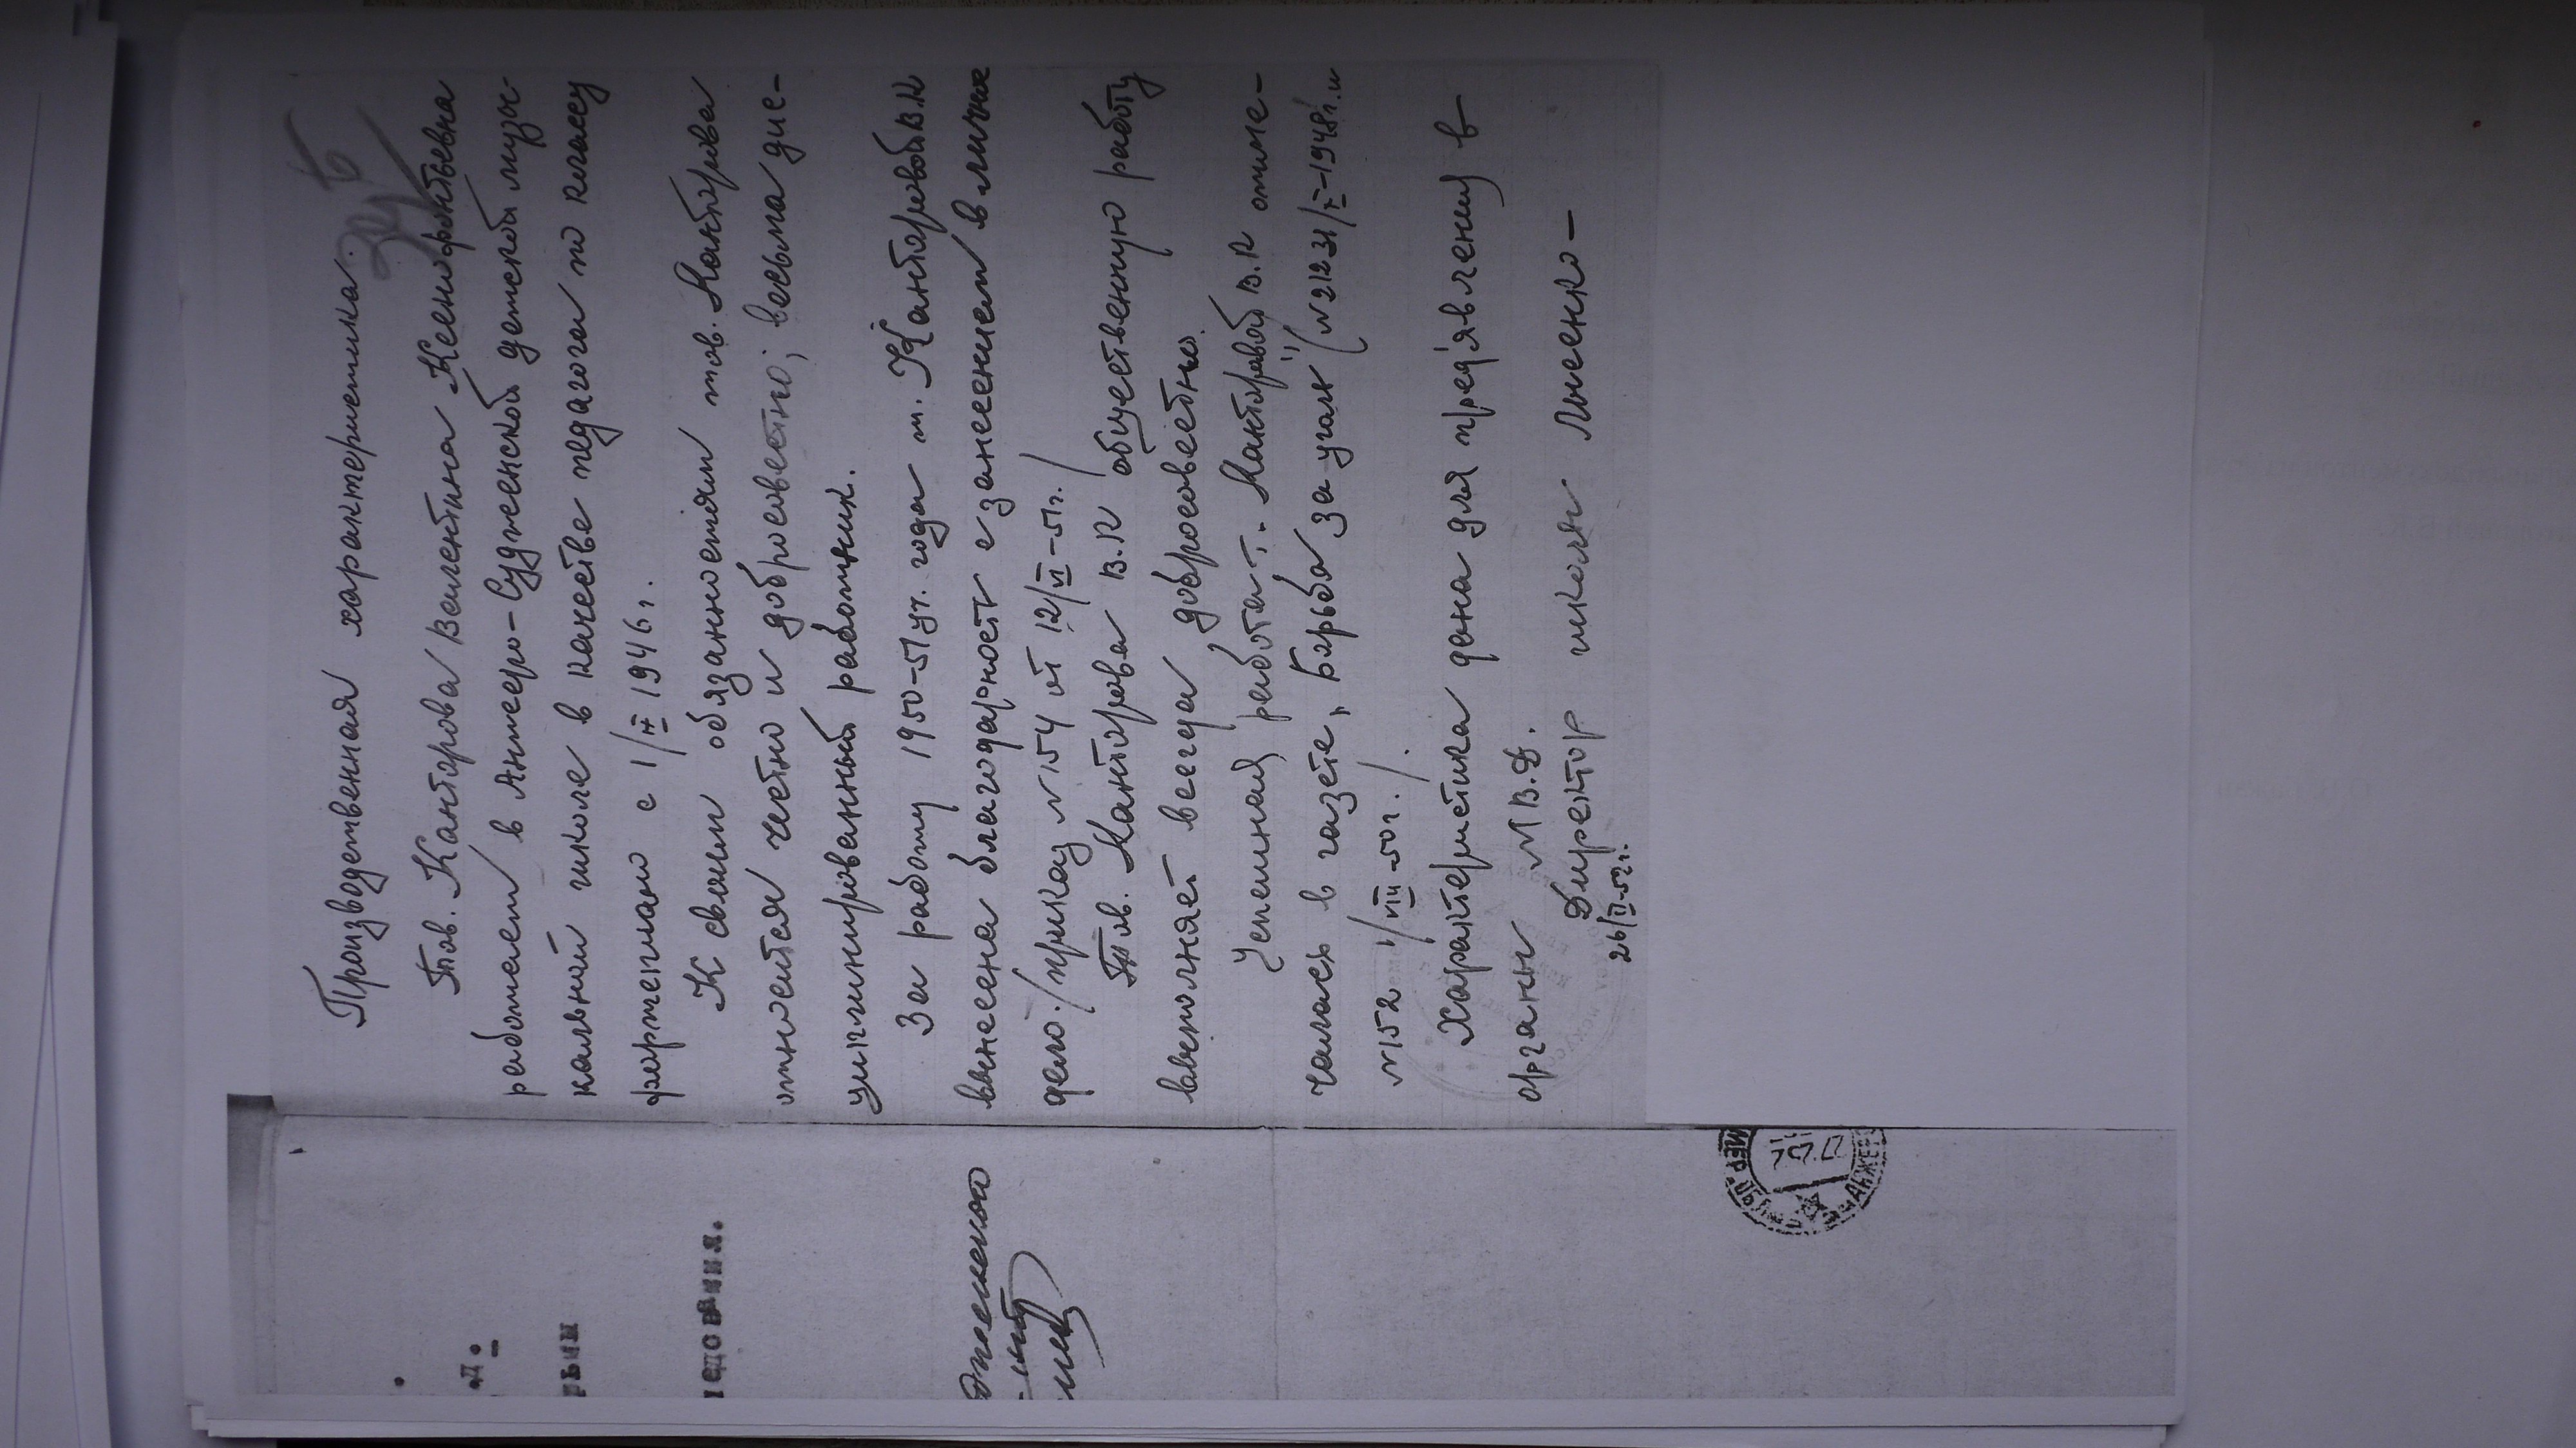 Производственная характеристика.
Тов. Канторова Валентина Ксенофонтьевна
работает в Анжеро-Судженской детской музы-
кальной школе в качестве педагога по классу
фортепиано с 1/IX 1946 г.
К своим обязанностям тов. Канторова
относится честно и добросовестно; весьма дис-
циплинированный работник.
За работу 1950-51 уч. года т. Канторовой В.К
вынесена благодарность с занесением в личное
дело. /приказ №154 от 12/VI-51г./
Тов. Канторова В.К общественную работу
выполняет всегда добросовестно.
Успешная работа т. Канторовой В.К отме-
чалась в газете „Борьба за уголь" (№212 31/X-1948г. и
№152 1/VIII-50г./.
Характеристика дана для пред'явления в
органы М.В.Д.
Директор школы Лысенко-
26/II-52г.
д.
рым
едования.